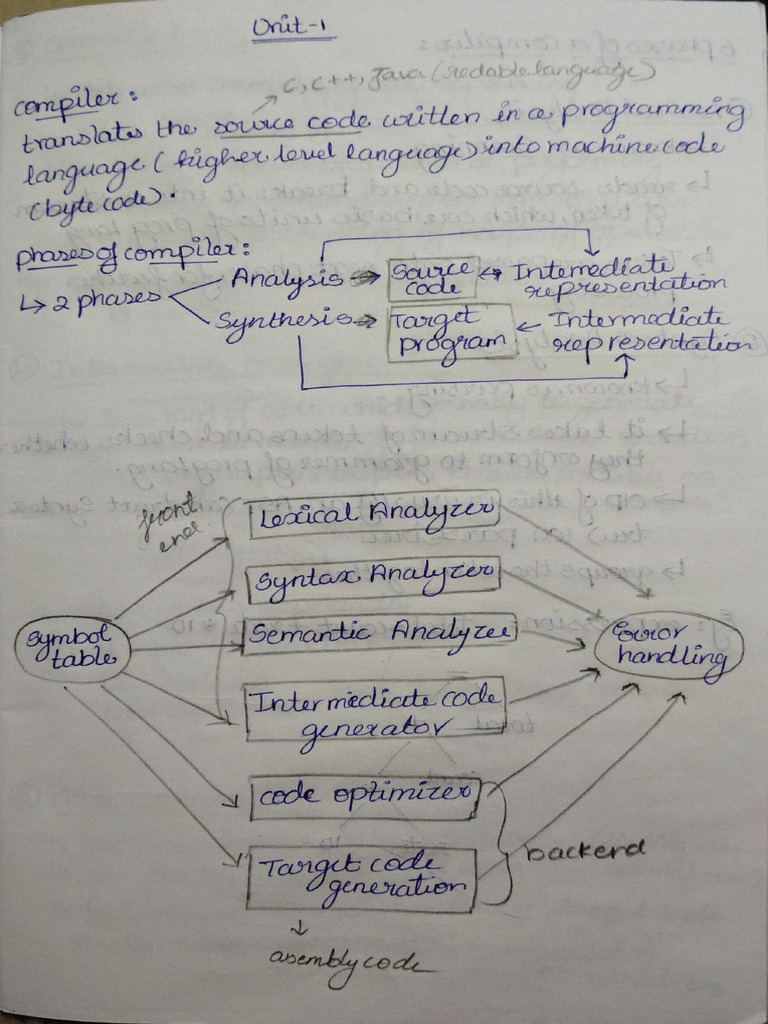 Unit-1
C, C++, Java (redable language)
compiler:
translates the source code written in a programming
language (higher level language) into machine code
(byte code).
phases of compiler:
↳ 2 phases
Analysis → Source code ↔ Intemediate representation
Synthesis → Target program ← Intermediate representation
front
end
Lexical Analyzer
Syntax Analyzer
Symbol
table
Semantic Analyzer
Error
handling
Intermediate code
generator
code optimizer
backend
Target code
generation
↓
asembly code